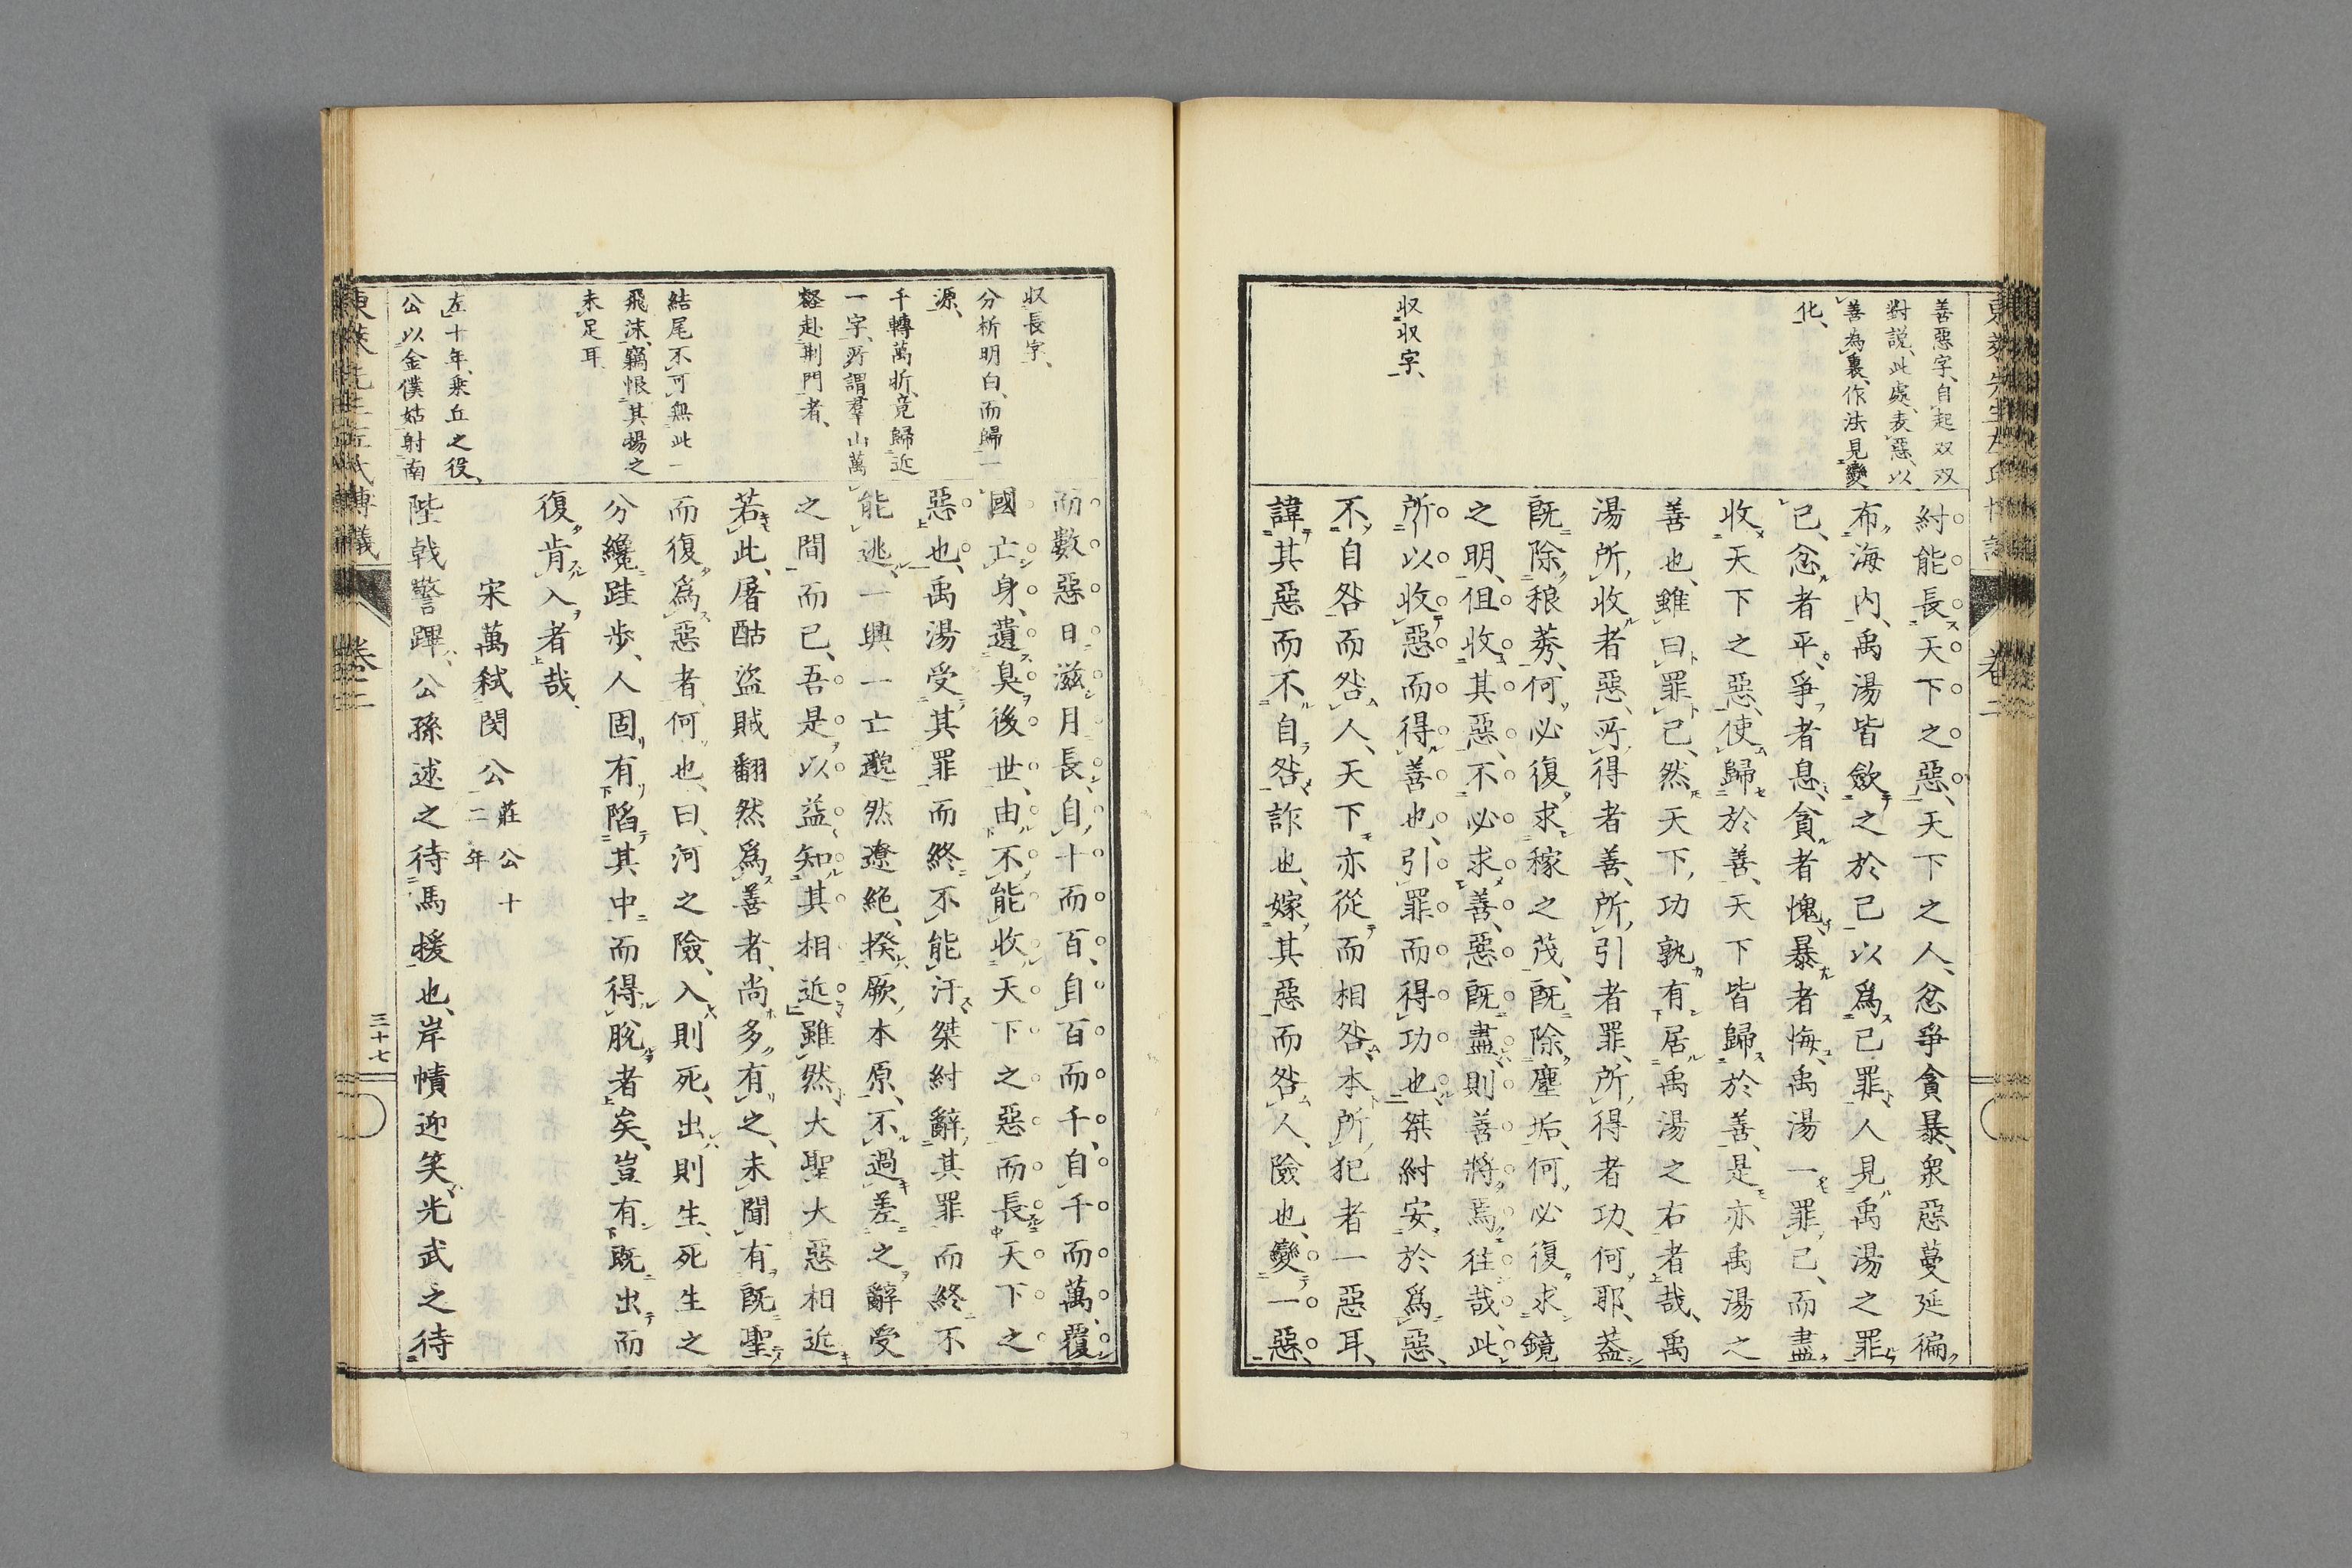 善惡字、自起双双
對說、此處、表惡、以
善為裏、作法見變
化、
収収字、
紂能長天下之惡、天下之人、忿爭貪暴、衆惡蔓延徧
布海內、禹湯皆斂之於己、以爲己罪、人見禹湯之罪
已、忿者平、爭者息、貪者愧、暴者悔、禹湯一罪己、而盡
收天下之惡、使歸於善、天下皆歸於善、是亦禹湯之
善也、雖曰罪己、然天下功孰有居禹湯之右者哉、禹
湯所收者惡、所得者善、所引者罪、所得者功、何耶、蓋
既除稂莠、何必復求稼之茂、既除塵垢、何必復求鏡
之明、但收其惡、不必求善、惡既盡、則善將焉往哉、此
所以收惡而得善也、引罪而得功也、桀紂安於爲惡、
不自咎而咎人、天下亦從而相咎、本所犯者一惡耳、
諱其惡而不自咎、詐也、嫁其惡而咎人、險也、變一惡、
卷二
収長字、
分析明白、而歸一
源、
千轉萬折、竟歸近
一字、所謂羣山萬
壑赴荆門者、
結尾不可無此一
飛沫、竊恨其揚之
未足耳
左十年、乘丘之役、
公以金僕姑射南
而數惡日滋月長、自十而百、自百而千、自千而萬、覆
國亡身、遺臭後世、由不能收天下之惡而長天下之
惡也、禹湯受其罪而終不能汙桀紂辭其罪而終不
能逃、一興一亡邈然遼絶、揆厥本原、不過差之辭受
之間而已、吾是以益知其相近雖然、大聖大惡相近
若此、屠酤盜賊翻然爲善者、尚多有之、未聞有既聖
而復爲惡者、何也、曰、河之險、入則死、出則生、死生之
分纔跬步、人固有陷其中而得脫者矣、豈有既出而
復肯入者哉、
宋萬弑閔公莊公十
二年
陛戟警蹕、公孫述之待馬援也、岸幘迎笑、光武之待
三十七